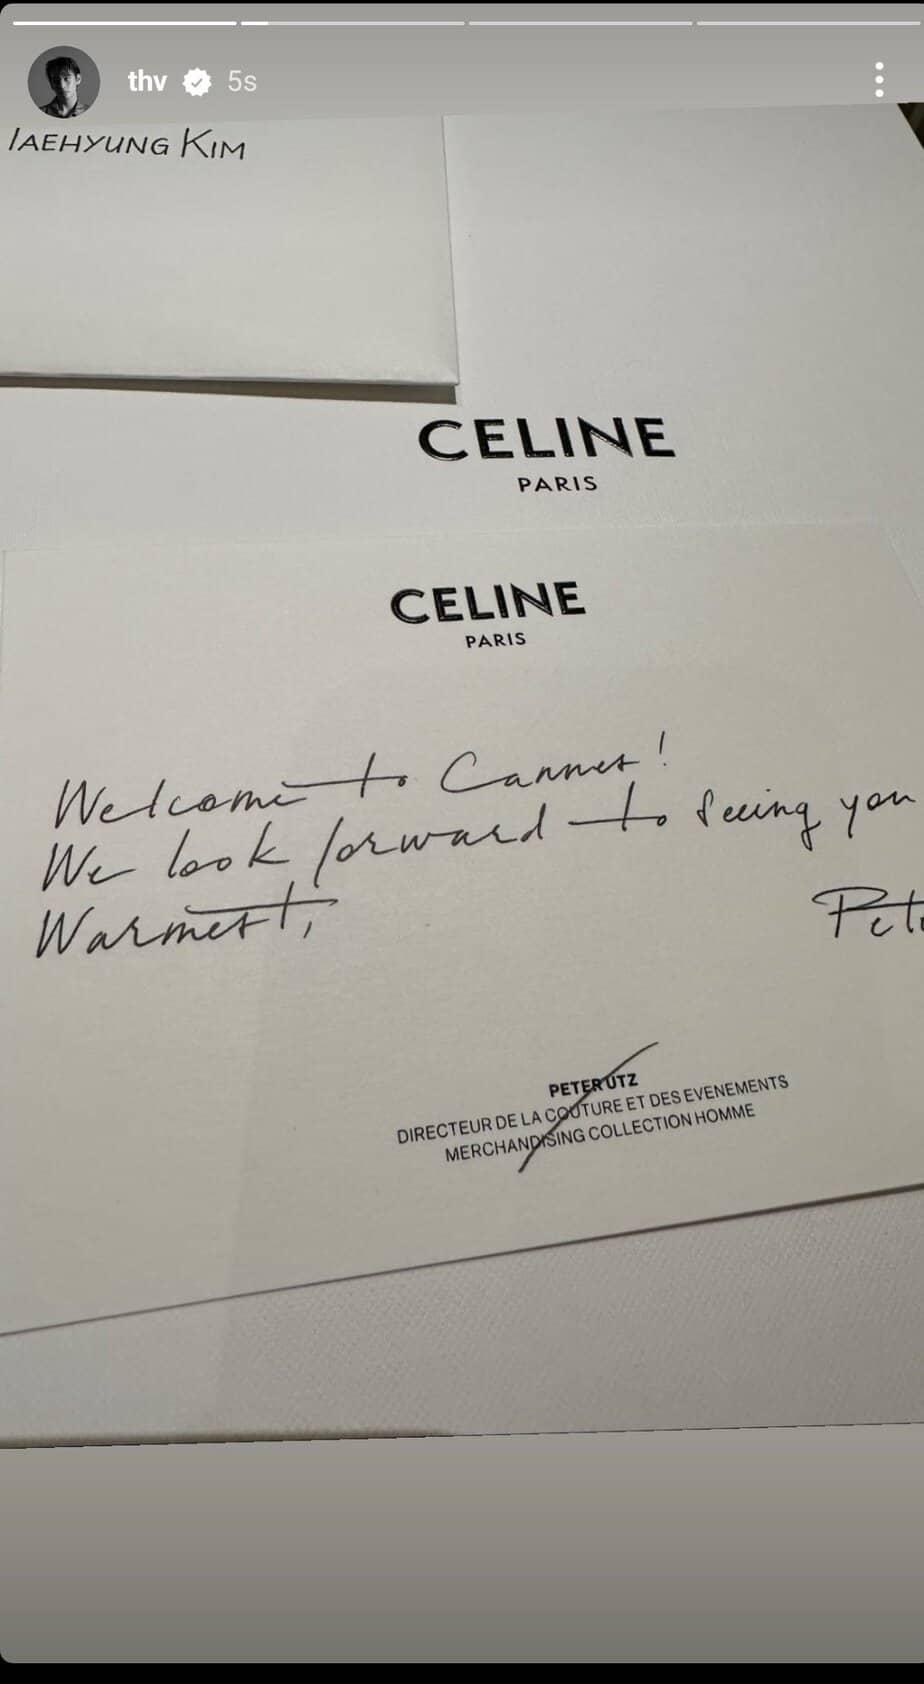 thv 5s
TAEHYUNG KIM
CELINE
PARIS
CELINE
PARIS
Welcome to Cannes!
We look forward to seeing you
Warmest,
PETER UTZ
DIRECTEUR DE LA COUTURE ET DES EVENEMENTS
MERCHANDISING COLLECTION HOMME